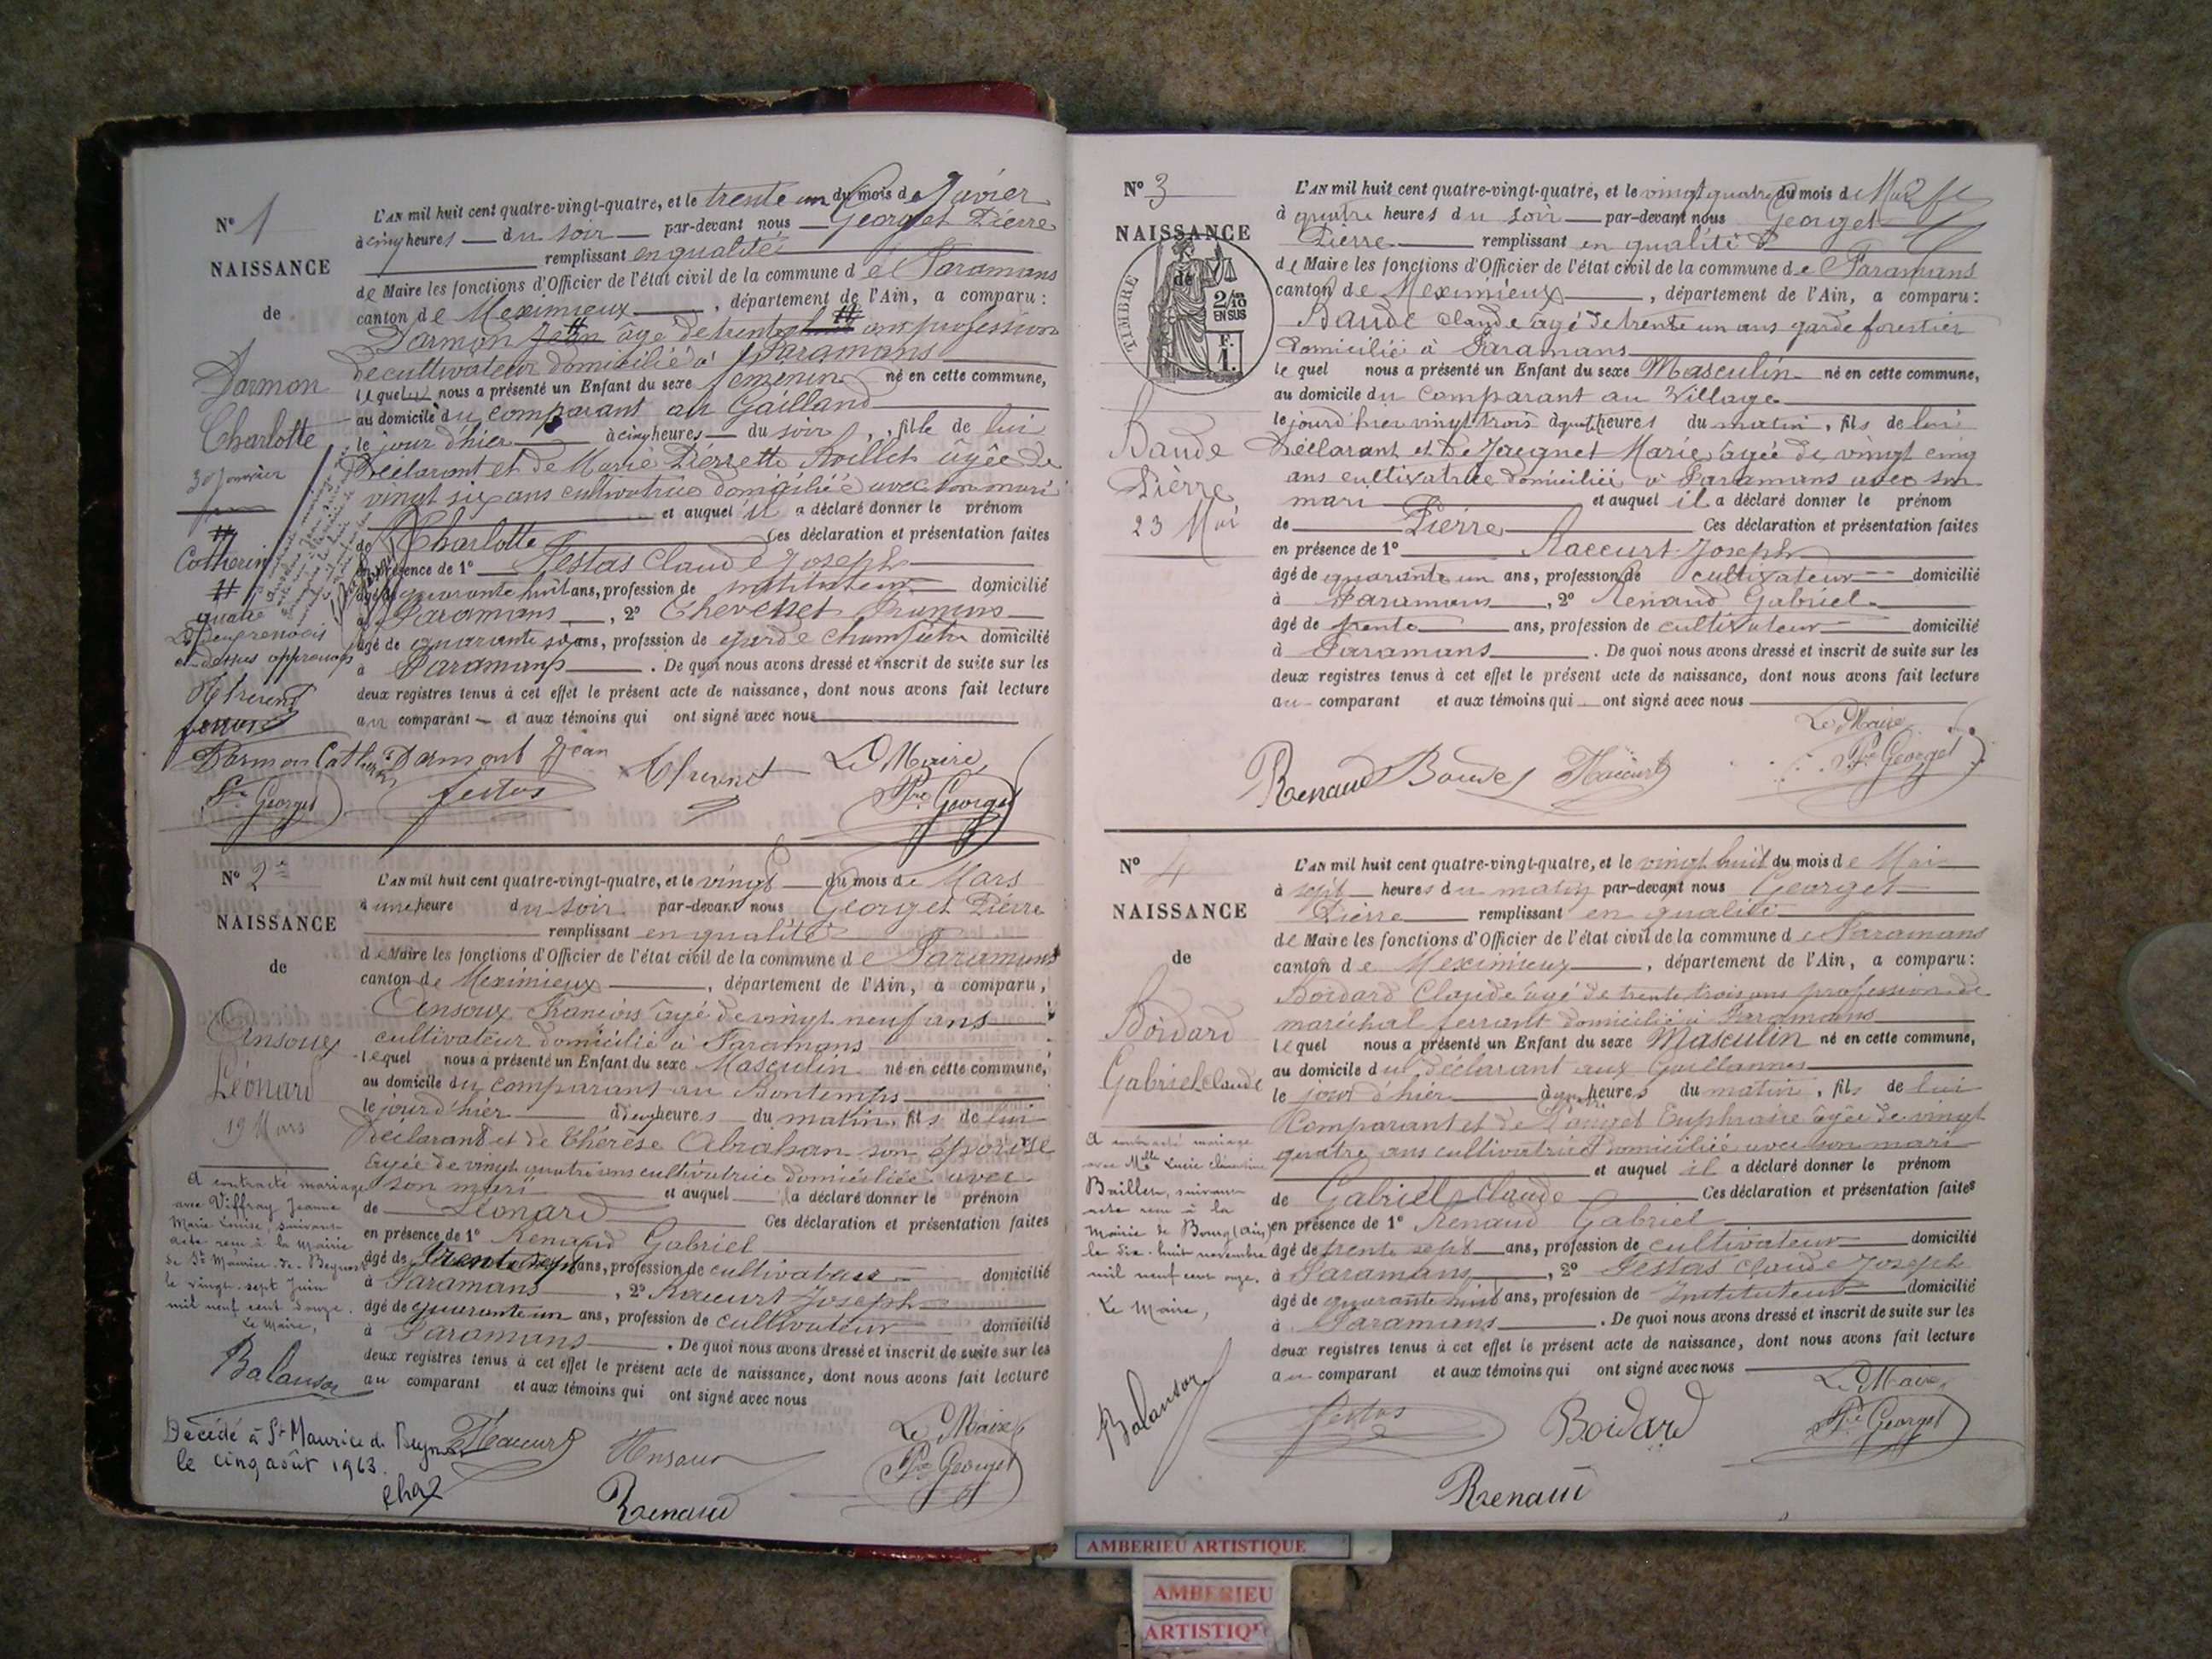 N° 1
NAISSANCE
de
Darmon
Charlotte
30 Janvier
#
Catherin
#
quatre
ci-dessus approuvés
L'AN mil huit cent quatre-vingt-quatre, et le trente un du mois de Janvier
à cinq heures du soir par-devant nous Georget Pierre
remplissant en qualité
de Maire les fonctions d'Officier de l'état civil de la commune de Faramans
canton de Meximieux, département de l'Ain, a comparu:
Darmon Jean âgé de trente # ans profession
de cultivateur domicilié à Faramans
lequel nous a présenté un Enfant du sexe femenin né en cette commune,
au domicile du comparant au Gailland
le jour d'hier à cinq heures du soir, fille de lui
Déclarant et de Marie Pierrette Rollet âgée de
vingt six ans cultivatrice domiciliée avec son mari
et auquel il a déclaré donner le prénom
de Charlotte Ces déclaration et présentation faites
en présence de 1° Festas Claude Joseph
âgé de quarante huit ans, profession de instituteur domicilié
à Faramans, 2°
âgé de quarante six ans, profession de garde champêtre domicilié
à Faramans. De quoi nous avons dressé et inscrit de suite sur les
deux registres tenus à cet effet le présent acte de naissance, dont nous avons fait lecture
au comparant et aux témoins qui ont signé avec nous
Darmon Catherin Darmont Jean Le Maire
Pre Georget festas Pre Georget
N° 2
NAISSANCE
de
Ansoux
Léonard
19 Mars
A contracté mariage
avec Viffray Jeanne
Marie Louise, suivant
acte reçu à la Mairie
de St Maurice-de-Beynost
le vingt-sept Juin
mil neuf cent douze.
Le Maire,
Balansor
Décédé à St Maurice de Beynost
le cinq août 1963.
L'AN mil huit cent quatre-vingt-quatre, et le vingt du mois de Mars
à une heure du soir par-devant nous Georget Pierre
remplissant en qualité
de Maire les fonctions d'Officier de l'état civil de la commune de Faramans
canton de Meximieux, département de l'Ain, a comparu,
Ansoux Francois âgé de vingt neuf ans
cultivateur domicilié à Faramans
lequel nous a présenté un Enfant du sexe Masculin né en cette commune,
au domicile du comparant au Bontemps
le jour d'hier à deux heures du matin, fils de lui
Déclarant et de Thérèse Abrahan son épouse
âgée de vingt quatre ans cultivatrice domiciliée avec
son mari et auquel a déclaré donner le prénom
de Léonard Ces déclaration et présentation faites
en présence de 1° Renaud Gabriel
âgé de trente sept ans, profession de cultivateur domicilié
à Faramans, 2° Raccurt Joseph
âgé de quarante un ans, profession de cultivateur domicilié
à Faramans. De quoi nous avons dressé et inscrit de suite sur les
deux registres tenus à cet effet le présent acte de naissance, dont nous avons fait lecture
au comparant et aux témoins qui ont signé avec nous
Raccurt Ansoux Le Maire
Renaud Pre Georget
N° 3
NAISSANCE
de
TIMBRE
2/10 EN SUS
F. 1.
Baude
Pierre
23 Mai
L'AN mil huit cent quatre-vingt-quatre, et le vingt quatre du mois de Mai
à quatre heures du soir par-devant nous Georget
Pierre remplissant en qualité
de Maire les fonctions d'Officier de l'état civil de la commune de Faramans
canton de Meximieux, département de l'Ain, a comparu:
Baude Claude âgé de trente un ans garde forestier
domicilié à Faramans
lequel nous a présenté un Enfant du sexe Masculin né en cette commune,
au domicile du comparant au Village
le jour d'hier vingt trois à quatre heures du matin, fils de lui
Déclarant et de Marie âgée de vingt cinq
ans cultivatrice domiciliée à Faramans avec son
mari et auquel il a déclaré donner le prénom
de Pierre Ces déclaration et présentation faites
en présence de 1° Raccurt Joseph
âgé de quarante un ans, profession de cultivateur domicilié
à Faramans, 2° Renaud Gabriel
âgé de trente ans, profession de cultivateur domicilié
à Faramans. De quoi nous avons dressé et inscrit de suite sur les
deux registres tenus à cet effet le présent acte de naissance, dont nous avons fait lecture
au comparant et aux témoins qui ont signé avec nous
Le Maire
Renaud Baude Raccurt Pre Georget
N° 4
NAISSANCE
de
Boidard
Gabriel Claude
A contracté mariage
avec Melle Lucie Clémentine
Baillen, suivant
acte reçu à la
Mairie de Bourg (Ain)
le dix-huit novembre
mil neuf cent onze.
Le Maire,
Balansor
L'AN mil huit cent quatre-vingt-quatre, et le vingt huit du mois de Mai
à sept heures du matin par-devant nous Georget
Pierre remplissant en qualité
de Maire les fonctions d'Officier de l'état civil de la commune de Faramans
canton de Meximieux, département de l'Ain, a comparu:
Boidard Claude âgé de trente trois ans profession de
maréchal ferrant domicilié à Faramans
lequel nous a présenté un Enfant du sexe Masculin né en cette commune,
au domicile du déclarant aux Gaillannes
le jour d'hier à heures du matin, fils de lui
Comparant et de Euphrasie âgée de vingt
quatre ans cultivatrice domiciliée avec son mari
et auquel il a déclaré donner le prénom
de Gabriel Claude Ces déclaration et présentation faites
en présence de 1° Renaud Gabriel
âgé de trente sept ans, profession de cultivateur domicilié
à Faramans, 2° Festas Claude Joseph
âgé de quarante huit ans, profession de Instituteur domicilié
à Faramans. De quoi nous avons dressé et inscrit de suite sur les
deux registres tenus à cet effet le présent acte de naissance, dont nous avons fait lecture
au comparant et aux témoins qui ont signé avec nous
Le Maire
festas Boidard Pre Georget
Renaud
AMBERIEU ARTISTIQUE
AMBERIEU
ARTISTIQU